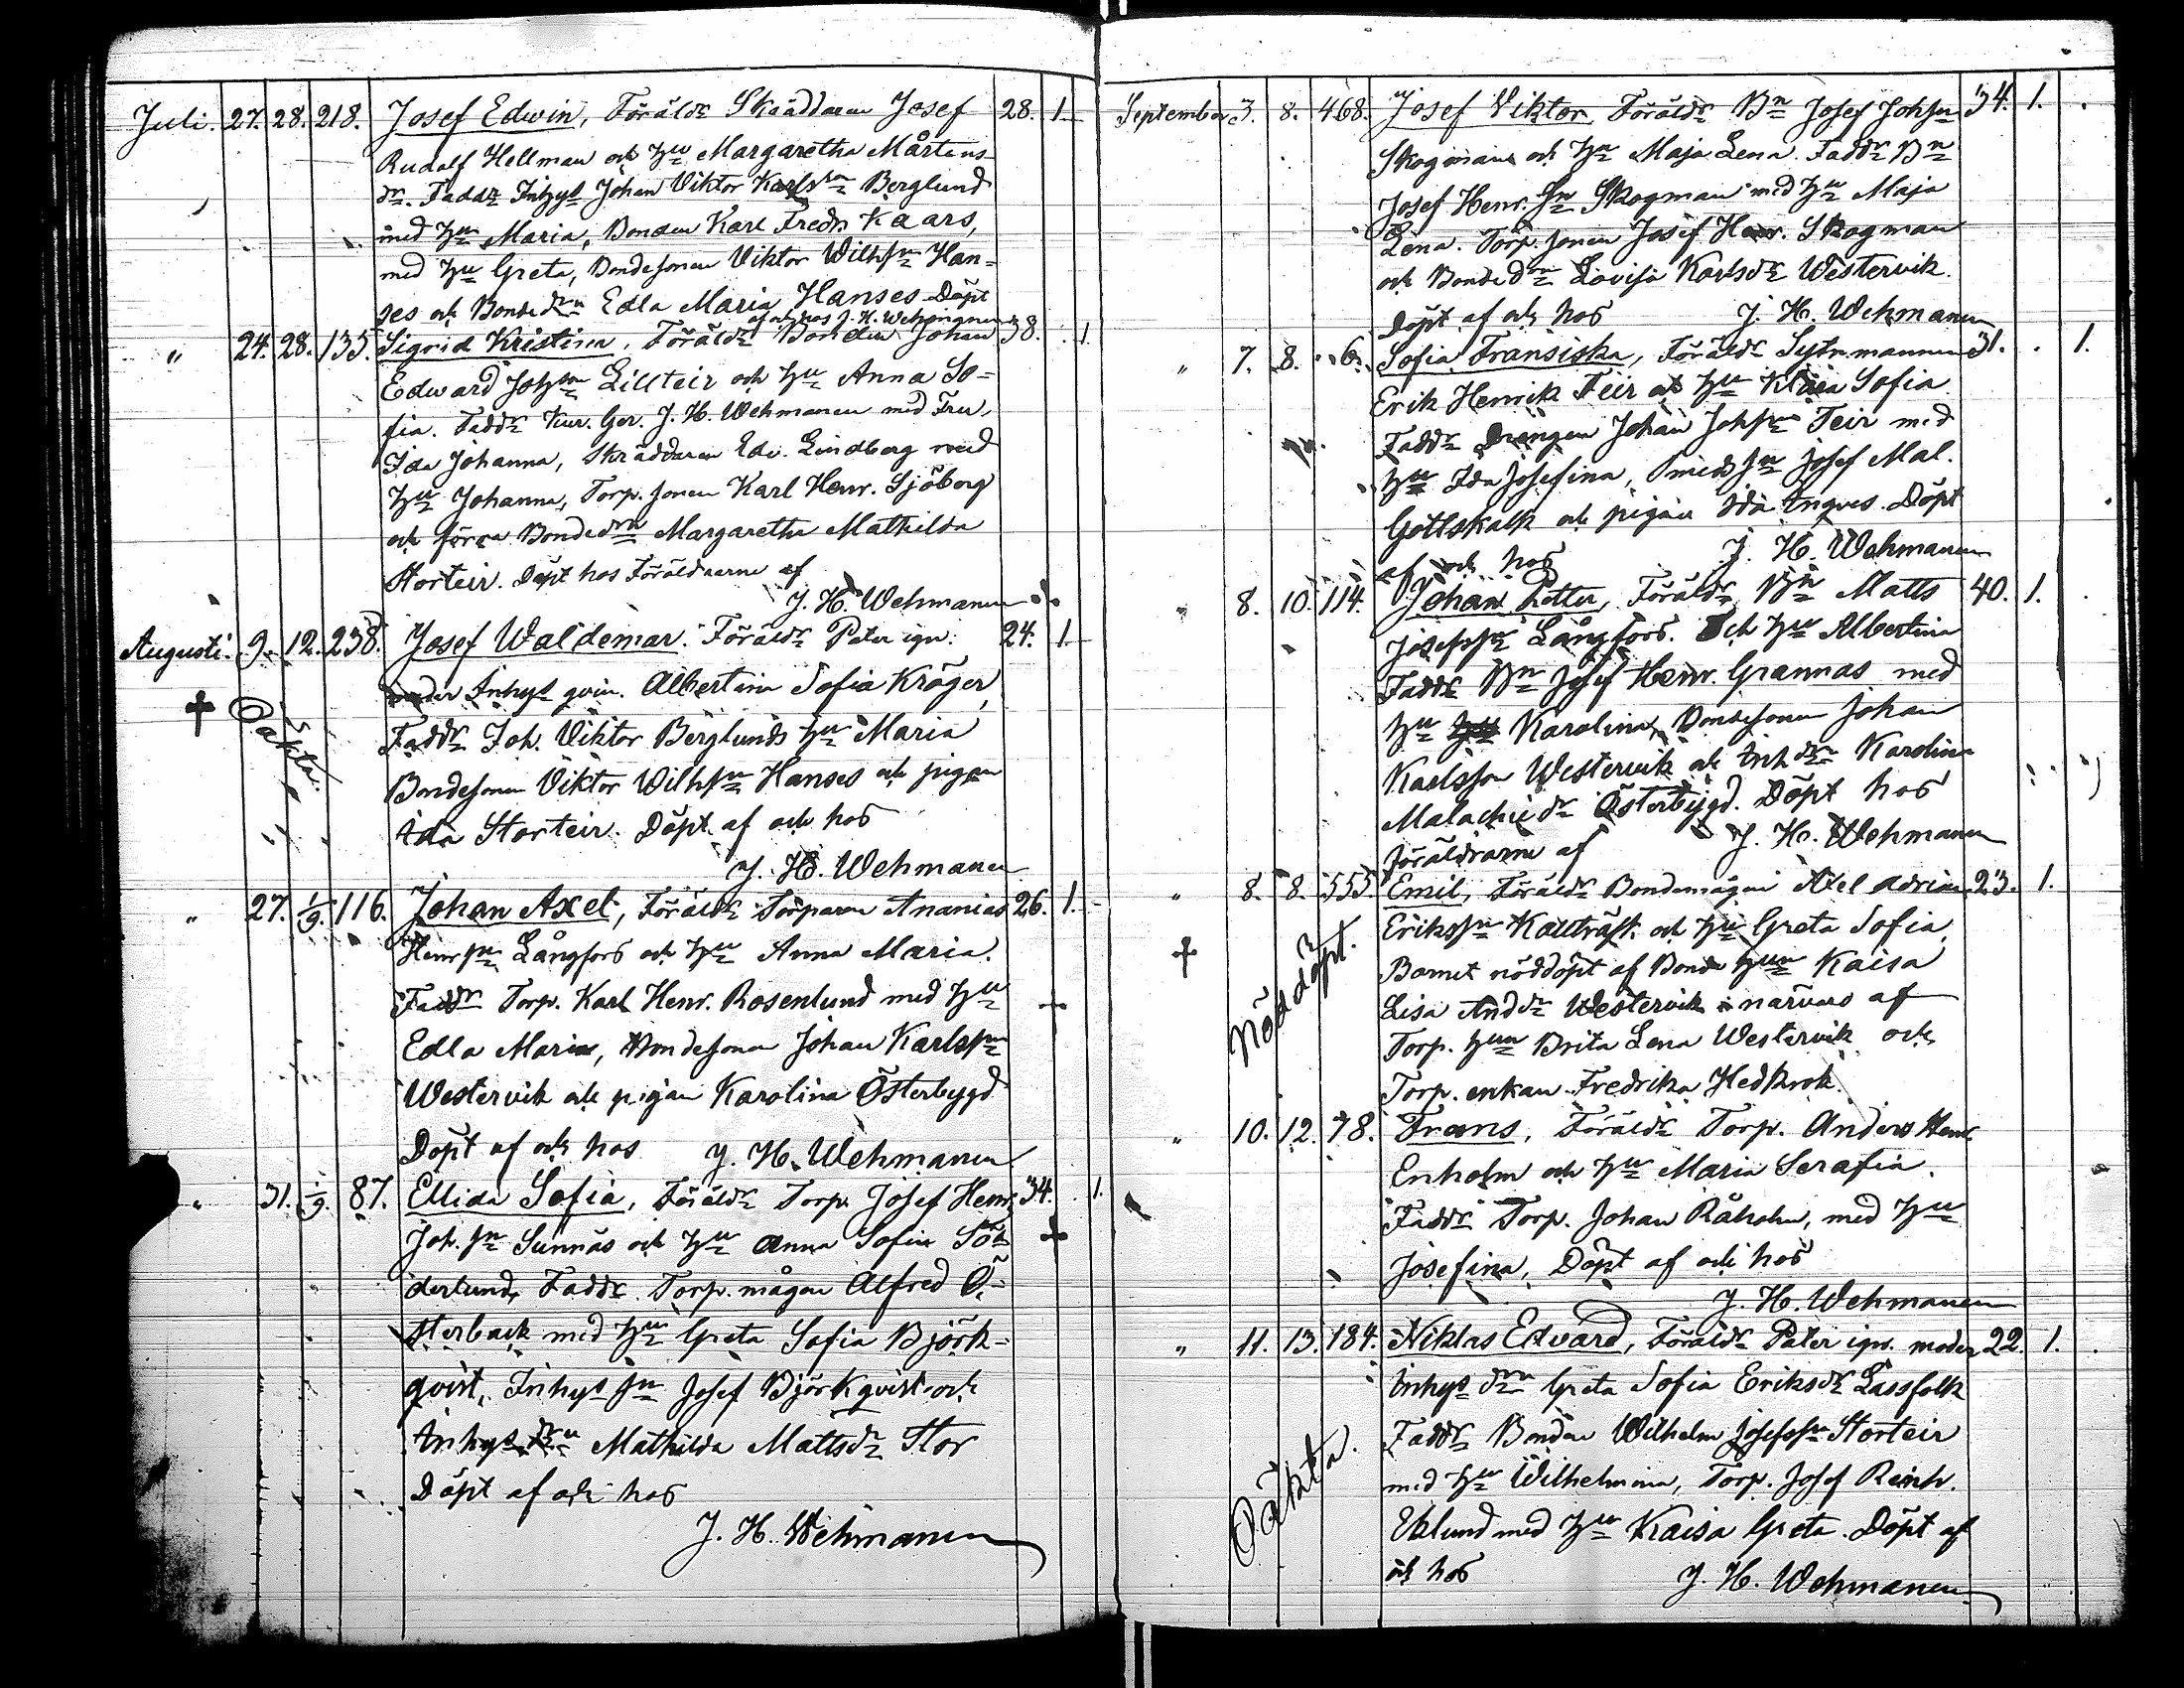 Juli. 27. 28. 218. Josef Edwin, Föräldr Skräddaren Josef 28. 1.
Rudolf Hellman och hu Margaretha Mårtens-
dr. Faddr Inhys Johan Viktor Karlssn Berglund
med hu Maria, Bonden Karl Fredr. Kaars,
med hu Greta, Bondesonen Viktor Wilhsn Han-
ses och Bondedrn Edla Maria Hanses Döpt
af och hos J. H. Wehmanen
" 24. 28. 135. Sigrid Kristina, Föräldr Bonden Johan 38. 1
Edward Johsson Lillteir och hu Anna So-
fia. Faddr J. H. Wehmanen med Fru,
Ida Johanna, Skräddaren Edv. Lindberg med
hu Johanna, Torp. sonen Karl Henr. Sjöberg
och Bondedrn Margaretha Mathilda
Storteir. Döpt hos Föräldrarne af
J. H. Wehmanen
Augusti. 9. 12. 238. Josef Waldemar. Föräldr Pater ign. 24. 1.
Oäkta
moder Inhys qvin. Albertina Sofia Kröger,
Faddr Joh. Viktor Berglunds hu Maria
Bondesonen Viktor Wilhsn Hanses och pigan
Ida Storteir. Döpt af och hos
J. H. Wehmanen
" 27. 1/9. 116. Johan Axel, Föräldr Torparen Ananias 26. 1.
Henrsn Långfors och hu Anna Maria.
Faddr Torp. Karl Henr. Rosenlund med hu
Edla Maria, Bondesonen Johan Karlssn
Westervik och pigan Karolina Österbygd
Döpt af och hos J. H. Wehmanen
" 31. 1/9. 87. Ellida Sofia, Föräldr Torp. Josef Henr. 34. 1.
Joh. sn Sunnäs och hu Anna Sofia Sö-
derlund, Faddr Torp. mågen Alfred Ö-
sterback med hu Greta Sofia Björk-
qvist, Inhys sn Josef Björkqvist och
Inhys drn Mathilda Mattsdr Stor
Döpt af och hos
J. H. Wehmanen
September 3. 8. 468. Josef Viktor Föräldr Bn Josef Johsn 34. 1.
Skogman och hu Maja Lena. Faddr Bn
Josef Henr. sn Skogman med hu Maja
Lena. Torp. sonen Josef Henr. Skogman
och Bondedrn Lovisa Karlsdr Westervik.
Döpt af och hos J. H. Wehmanen
" 7. 8. 6. Sofia Fransiska, Föräldr Sytn. mannen 31. 1.
Erik Henrik Teir och hu Klara Sofia
Faddr Drängen Johan Johssn Teir med
hu Ida Josefina, smeds sn Josef Mal.
Gottskalk och pigan Ida Ingves. Döpt
af och hos J. H. Wehmanen
" 8. 10. 114. Johan Petter, Föräldr Bn Matts 40. 1.
Josefssn Långfors. Och hu Albertina
Faddr Bn Josef Henr. Grannas med
hu Karolina, Bondesonen Johan
Karlsson Westervik och Inh drn Karolina
Malachie dr Österbygd. Döpt hos
föräldrarne af J. H. Wehmanen
" 8. 8. 555. Emil, Föräldr Bondemågen Axel Adrian 23. 1.
Nöddöpt.
Erikssn Kallträsk och hu Greta Sofia,
Barnet nöddöpt af Bonde hun Kaisa
Lisa And dr Westervik i närvaro af
Torp. hun Brita Lena Westervik och
Torp. enkan Fredrika Hedkrok.
" 10. 12. 78. Frans, Föräldr Torp. Anders Henr.
Enholm och hu Maria Serafia.
Faddr Torp. Johan Råholm, med hu
Josefina, Döpt af och hos
J. H. Wehmanen
" 11. 13. 184. Niklas Edvard, Föräldr Pater ign. moder 22. 1.
Oäkta.
Inhys drn Greta Sofia Eriksdr Lassfolk
Faddr Bonden Wilhelm Josefssn Storteir
med hu Wilhelmina, Torp. Josef Reinh.
Eklund med hu Kaisa Greta. Döpt af
och hos J. H. Wehmanen